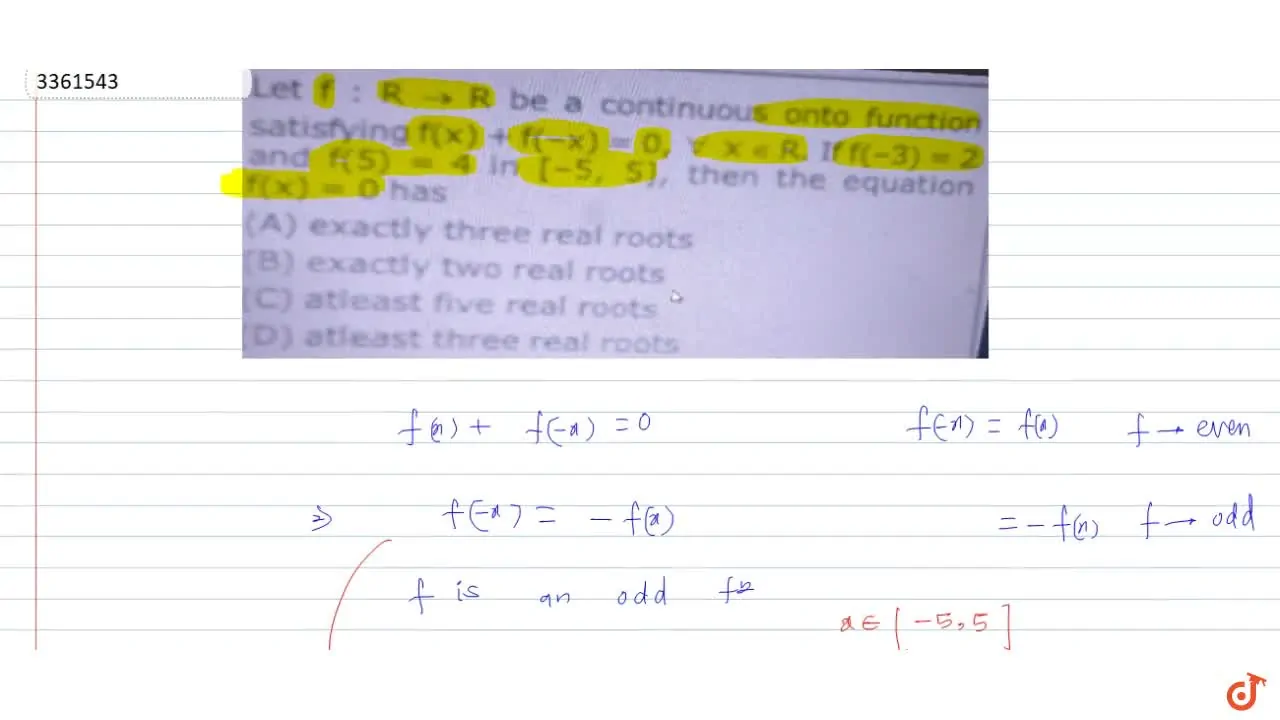 3361543
Let f : R → R be a continuous onto function
satisfying f(x) + f(-x) = 0, ∀ x ∈ R. If f(-3) = 2
and f(5) = 4 in [-5, 5], then the equation
f(x) = 0 has
(A) exactly three real roots
(B) exactly two real roots
(C) atleast five real roots
(D) atleast three real roots
f(x) + f(-x) = 0
f(-x) = f(x) f → even
⇒ f(-x) = - f(x)
= - f(x) f → odd
f is an odd fn
x ∈ [-5, 5]